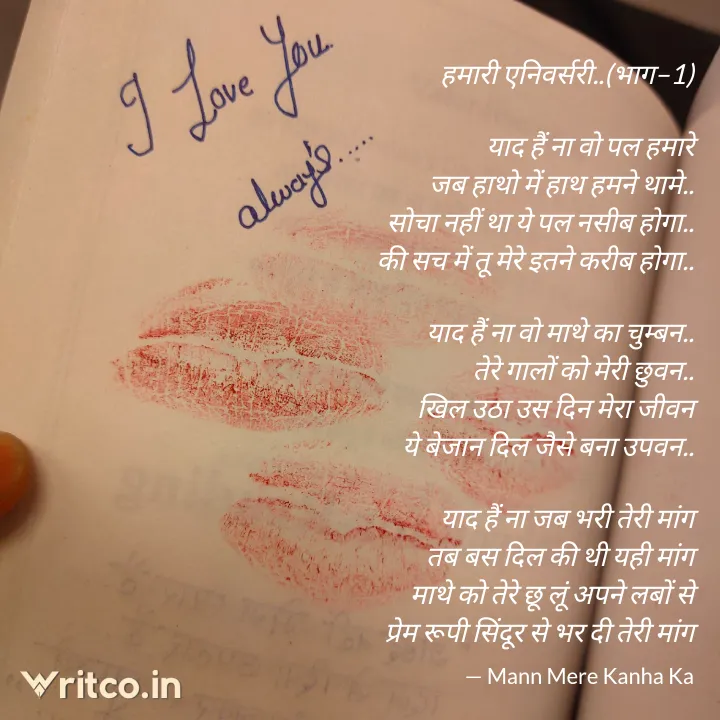 I Love You.
always.....
हमारी एनिवर्सरी..(भाग-1)
याद हैं ना वो पल हमारे
जब हाथो में हाथ हमने थामे..
सोचा नहीं था ये पल नसीब होगा..
की सच में तू मेरे इतने करीब होगा..
याद हैं ना वो माथे का चुम्बन..
तेरे गालों को मेरी छुवन..
खिल उठा उस दिन मेरा जीवन
ये बेजान दिल जैसे बना उपवन..
याद हैं ना जब भरी तेरी मांग
तब बस दिल की थी यही मांग
माथे को तेरे छू लूं अपने लबों से
प्रेम रूपी सिंदूर से भर दी तेरी मांग
— Mann Mere Kanha Ka
Writco.in